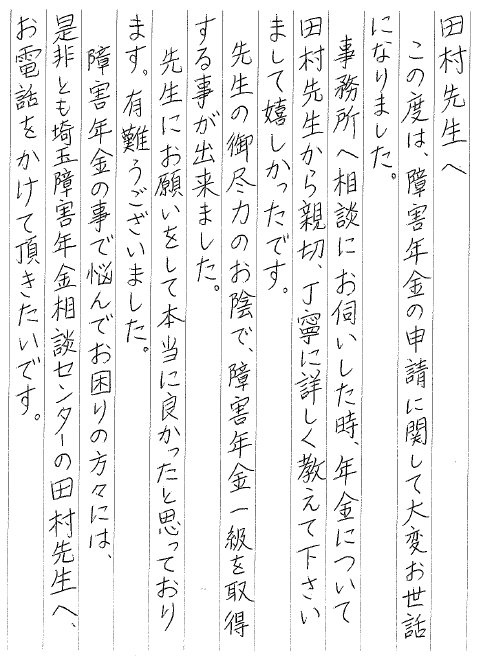 田村先生へ
この度は、障害年金の申請に関して大変お世話
になりました。
事務所へ相談にお伺いした時、年金について
田村先生から親切、丁寧に詳しく教えて下さい
まして嬉しかったです。
先生の御尽力のお陰で、障害年金一級を取得
する事が出来ました。
先生にお願いをして本当に良かったと思っており
ます。有難うございました。
障害年金の事で悩んでお困りの方々には、
是非とも埼玉障害年金相談センターの田村先生へ、
お電話をかけて頂きたいです。